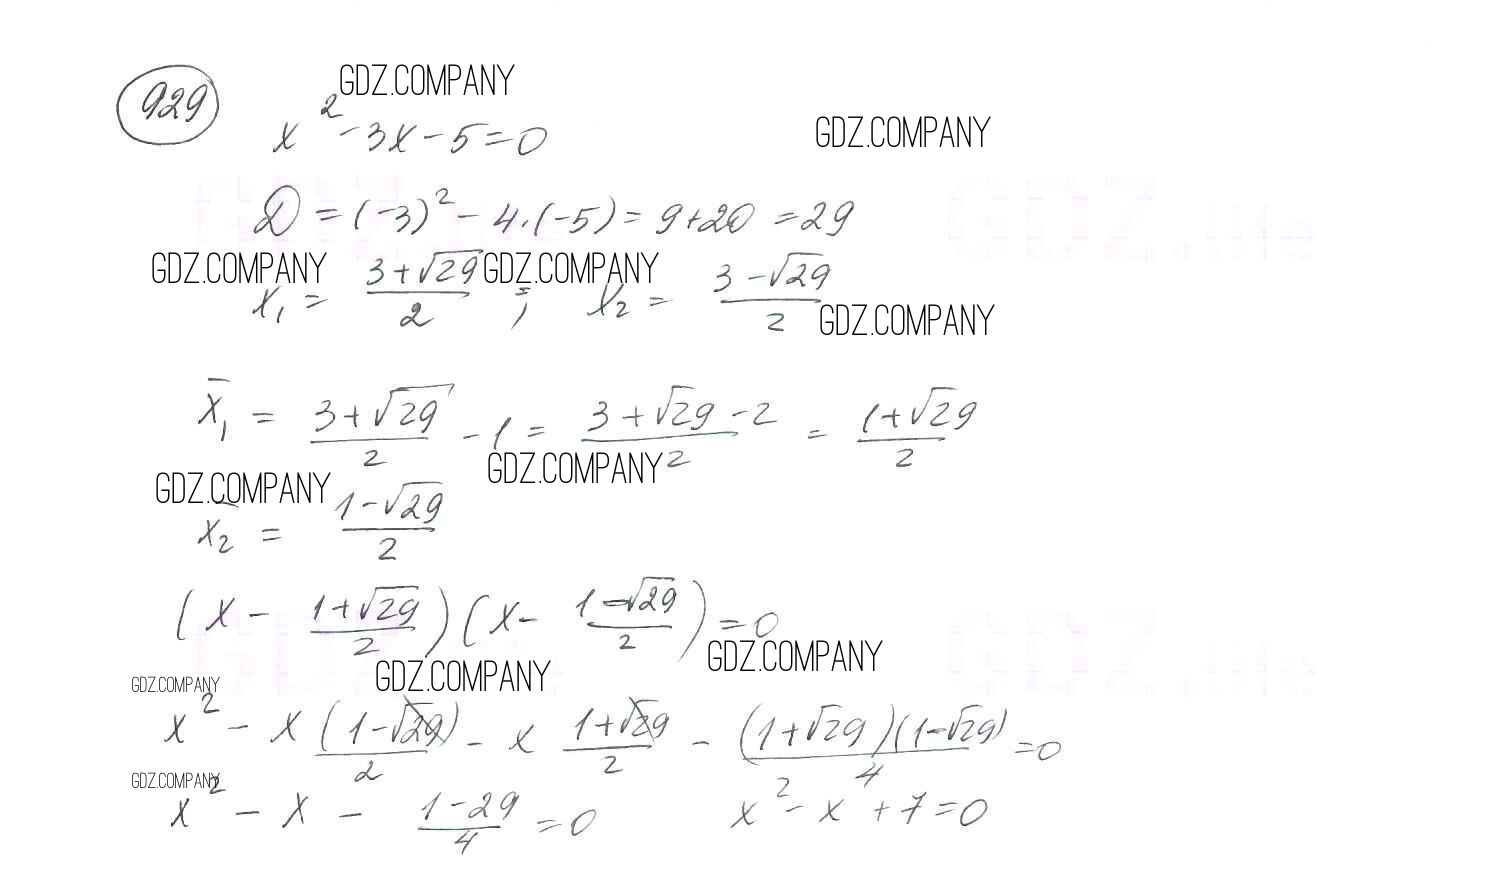 GDZ.COMPANY
929
x² - 3x - 5 = 0
GDZ.COMPANY
D = (-3)² - 4·(-5) = 9+20 = 29
GDZ.COMPANY GDZ.COMPANY
x₁ = (3+√29)/2 ; x₂ = (3-√29)/2
GDZ.COMPANY
x̄₁ = (3+√29)/2 - 1 = (3+√29-2)/2 = (1+√29)/2
GDZ.COMPANY
GDZ.COMPANY
x̄₂ = (1-√29)/2
(x - (1+√29)/2)(x - (1-√29)/2) = 0
GDZ.COMPANY
GDZ.COMPANY
GDZ.COMPANY
x² - x (1-√29)/2 - x (1+√29)/2 - (1+√29)(1-√29)/4 = 0
GDZ.COMPANY
x² - x - (1-29)/4 = 0 x² - x + 7 = 0